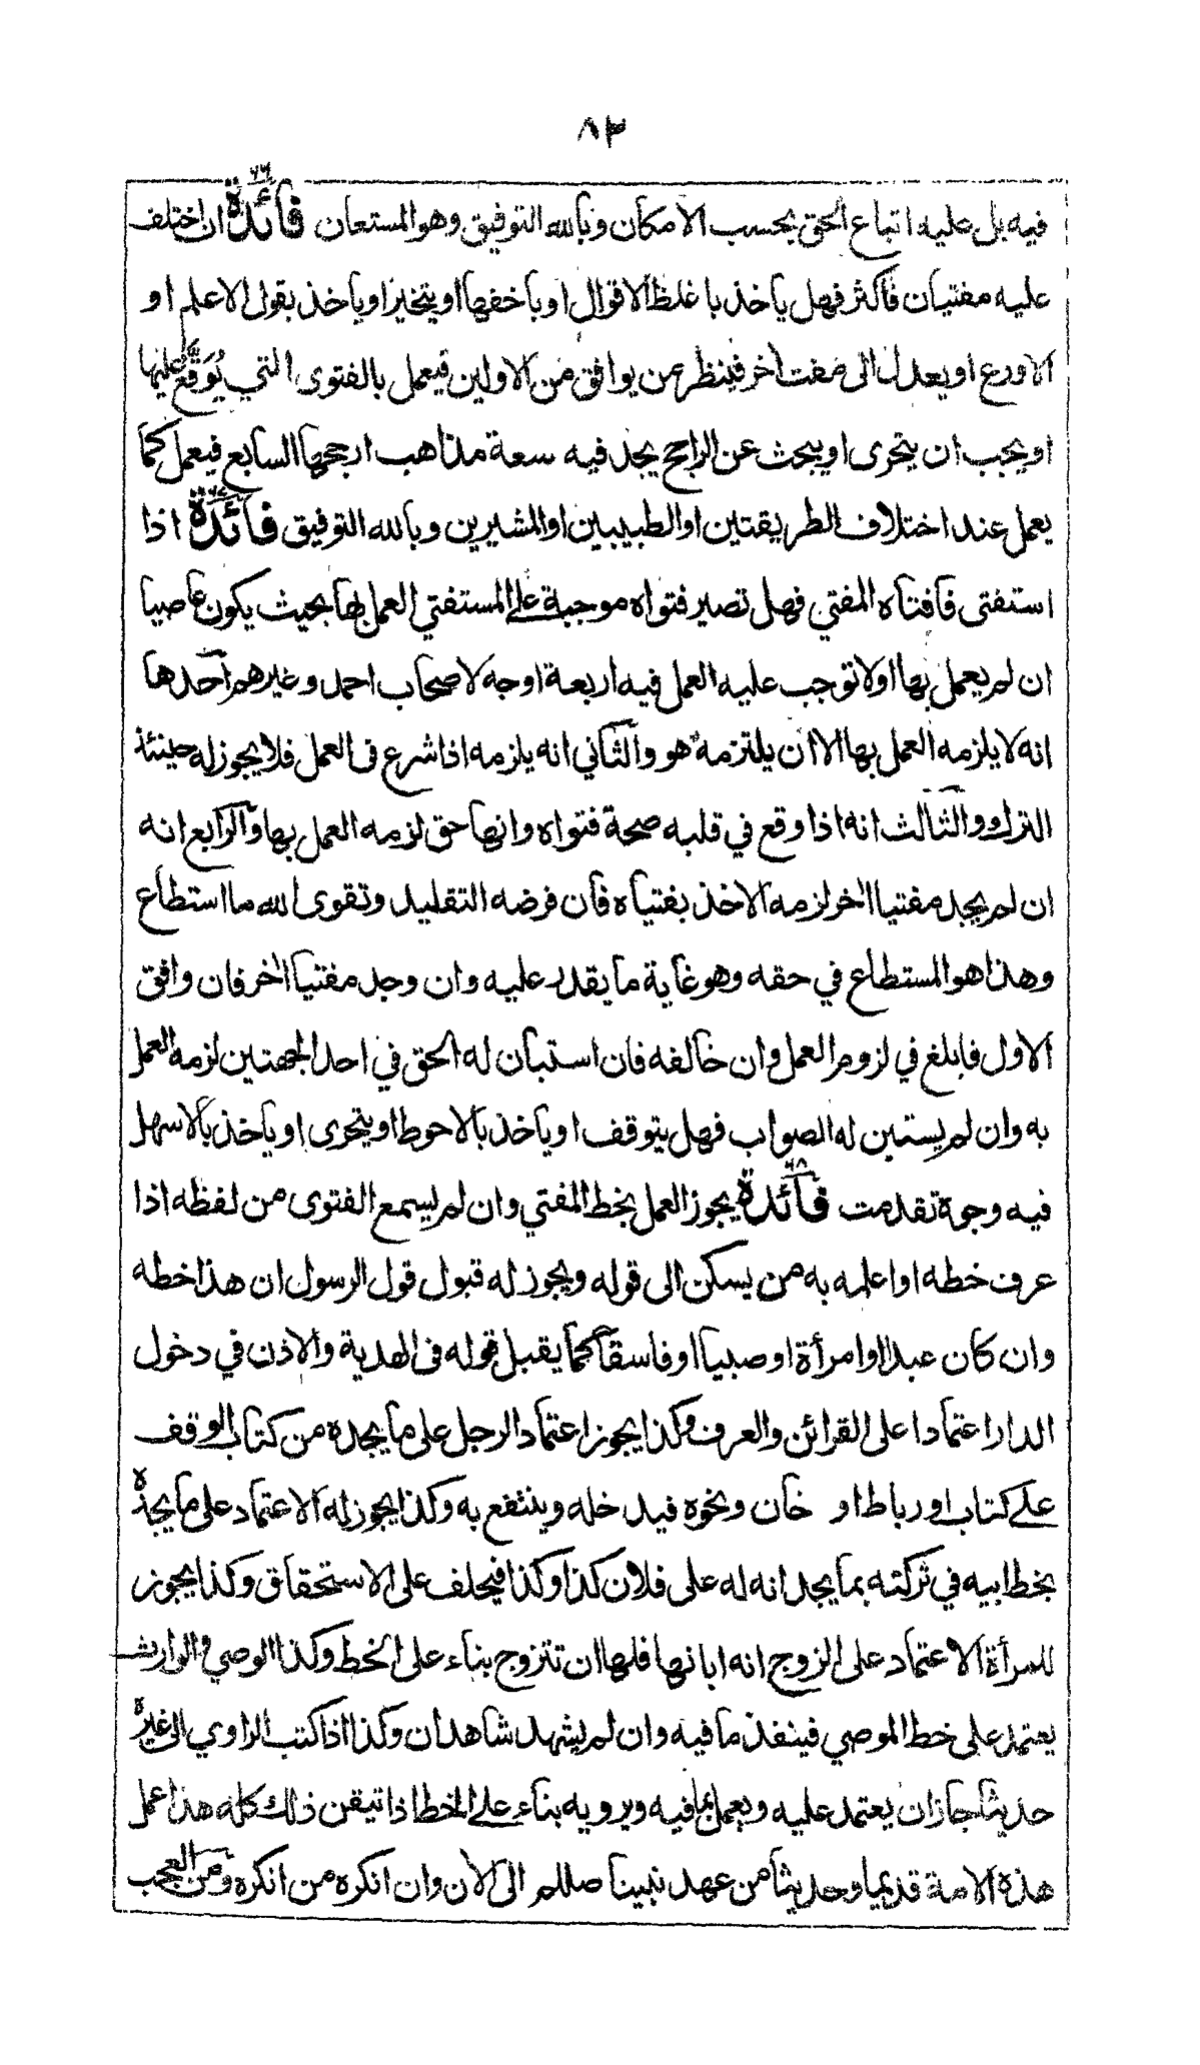 ٨٣
فيه بل عليه اتباع الحق بحسب الامكان وبالله التوفيق وهو المستعان فائدة ٧٦ ان اختلف
عليه مفتيان فاكثر فهل ياخذ باغلظ الاقوال او باخفها او يتخير او ياخذ بقول الاعلم او
الاورع او يعدل الى مفت اخر فينظر من يوافق من الاولين فيعمل بالفتوى التي يُوَقَّع عليها
او يجب ان يتحرى او يبحث عن الراجح بجد فيه سعة مذاهب ارجحها السابع فيعمل كما
يعمل عند اختلاف الطريقتين او الطبيبين او المشيرين وبالله التوفيق فائدة اذا
استفتى فافتاه المفتي فهل تصير فتواه موجبة على المستفتي العمل بها بحيث يكون عاصيا
ان لم يعمل بها او لا توجب عليه العمل فيه اربعة اوجه لاصحاب احمد وغيرهم احدها
انه لا يلزمه العمل بها الا ان يلتزمه هو والثاني انه يلزمه اذا شرع فى العمل فلا يجوز له حينئذ
الترك والثالث انه اذا وقع في قلبه صحة فتواه وانها حق لزمه العمل بها والرابع انه
ان لم يجد مفتيا اخر لزمه الاخذ بفتياه فان فرضه التقليد وتقوى الله ما استطاع
وهذا هو المستطاع في حقه وهو غاية ما يقدر عليه وان وجد مفتيا اخر فان وافق
الاول فابلغ في لزوم العمل وان خالفه فان استبان له الحق في احد الجهتين لزمه العمل
به وان لم يستبن له الصواب فهل يتوقف او ياخذ بالاحوط او يتحرى او ياخذ بالاسهل
فيه وجوه تقدمت فائدة ٧٨ يجوز العمل بخط المفتي وان لم يسمع الفتوى من لفظه اذا
عرف خطه او اعلمه به من يسكن الى قوله ويجوز له قبول قول الرسول ان هذا خطه
وان كان عبدا او امرأة او صبيا او فاسقا كما يقبل قوله فى الهدية والاذن في دخول
الدار اعتمادا على القرائن والعرف وكذا يجوز اعتماد الرجل على ما يجده من كتاب الوقف
على كتاب او رباط او خان ونحوه فيدخله وينتفع به وكذا يجوز له الاعتماد على ما يجده
بخط ابيه في تركته بما يجد انه له على فلان كذا وكذا فيحلف على الاستحقاق وكذا يجوز
للمرأة الاعتماد على الزوج انه ابانها فلها ان تتزوج بناء على الخط وكذا الوصي والوارث
يعتمد على خط الموصي فينفذ ما فيه وان لم يشهد شاهدان وكذا اذا كتب الراوي الى غيره
حديثا جاز ان يعتمد عليه ويعمل بما فيه ويرويه بناء على الخط اذا تيقن ذلك كله هذا عمل
هذه الامة قديما وحديثا من عهد نبينا صللم الى الان وان انكره من انكره ومن العجب